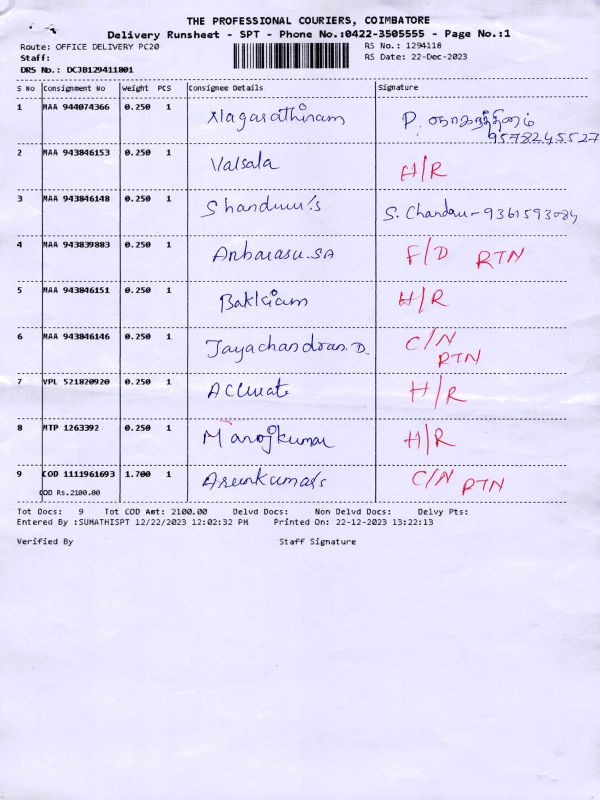 THE PROFESSIONAL COURIERS, COIMBATORE
Delivery Runsheet - SPT - Phone No.:0422-3505555 - Page No.:1
Route: OFFICE DELIVERY PC20 RS No.: 1294118
Staff: RS Date: 22-Dec-2023
DRS No.: DCJB129411801
S No Consignment No Weight PCS Consignee Details Signature
1 MAA 944074366 0.250 1 Nagarathinam P. நாகரத்தினம்
9578245527
2 MAA 943846153 0.250 1 Valsala H/R
3 MAA 943846148 0.250 1 S. Chandau - 9361593084
4 MAA 943839883 0.250 1 Anbarasu.SA F/D RTN
5 MAA 943846151 0.250 1 Bakkiam H/R
6 MAA 943846146 0.250 1 Jayachandran.D. C/N
RTN
7 VPL 521820920 0.250 1 Accurate H/R
8 MTP 1263392 0.250 1 Manojkumar H/R
9 COD 1111961693 1.700 1 Arunkumar's C/N RTN
COD Rs.2100.00
Tot Docs: 9 Tot COD Amt: 2100.00 Delvd Docs: Non Delvd Docs: Delvy Pts:
Entered By :SUMATHISPT 12/22/2023 12:02:32 PM Printed On: 22-12-2023 13:22:13
Verified By Staff Signature